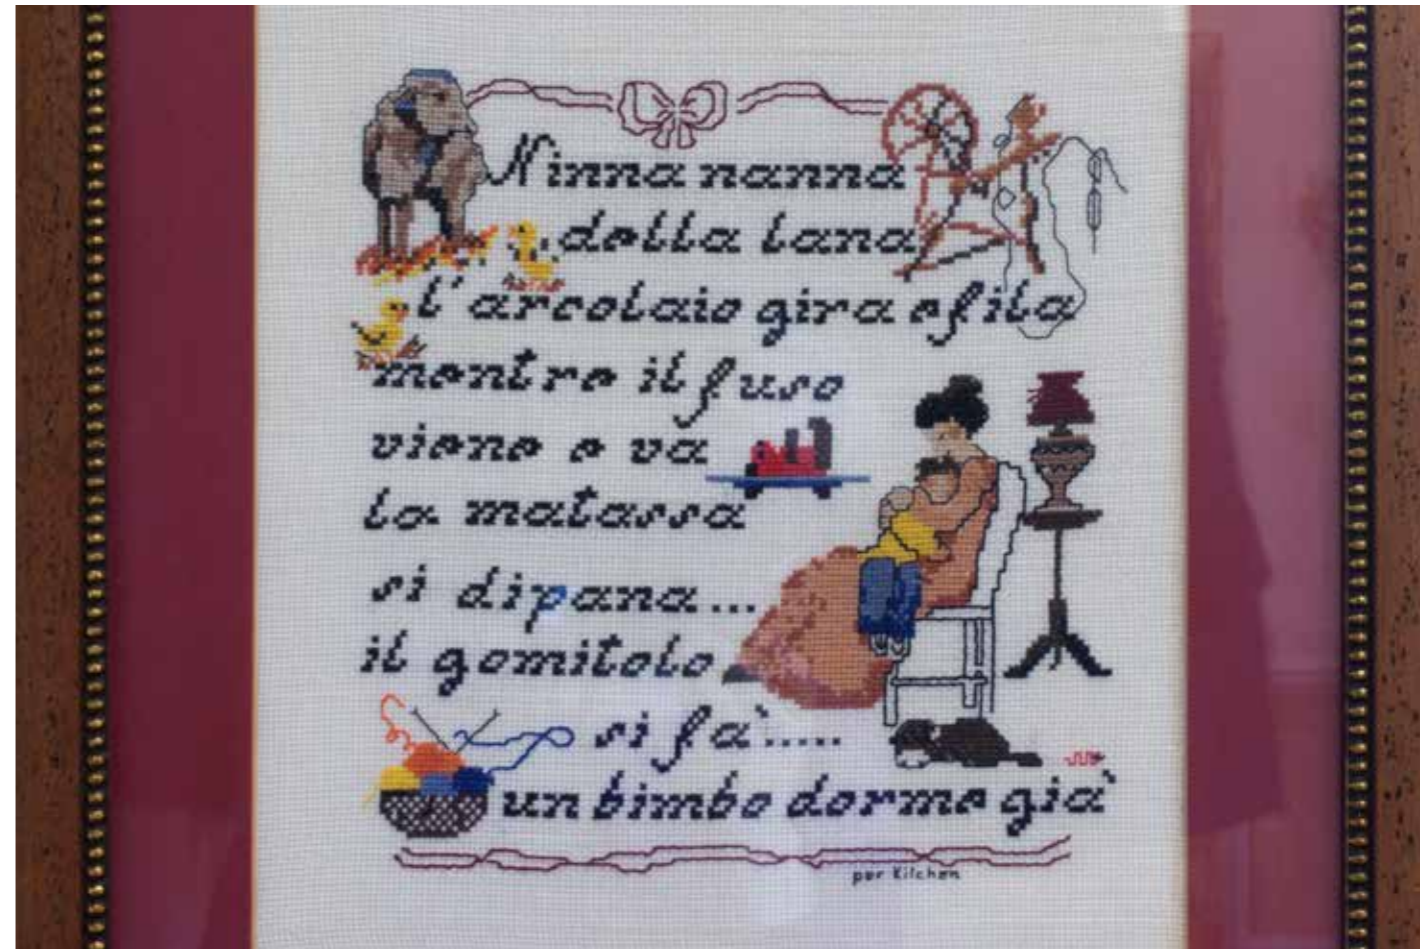 Ninna nanna
della lana
l'arcolaio gira e fila
mentre il fuso
viene e va
la matassa
si dipana...
il gomitolo
si fà.....
un bimbo dorme già
per Kilchen